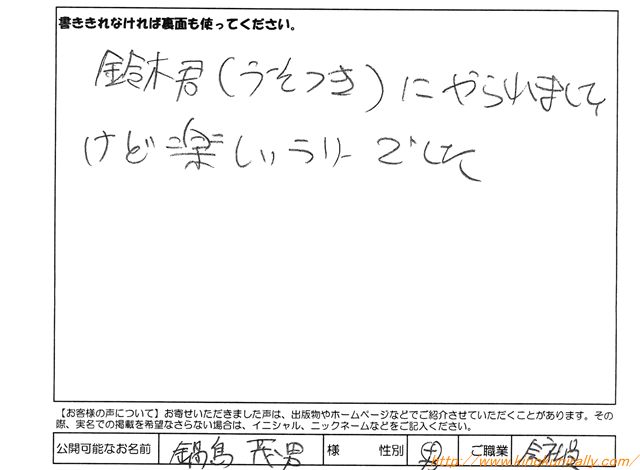 書ききれなければ裏面も使ってください。
鈴木君(うそつき)にやられました
けど楽しいラリーでした
【お客様の声について】お寄せいただきました声は、出版物やホームページなどでご紹介させていただくことがあります。その
際、実名での掲載を希望なさらない場合は、イニシャル、ニックネームなどをご記入ください。
公開可能なお名前 鍋島 茂男 様 性別 男 ご職業